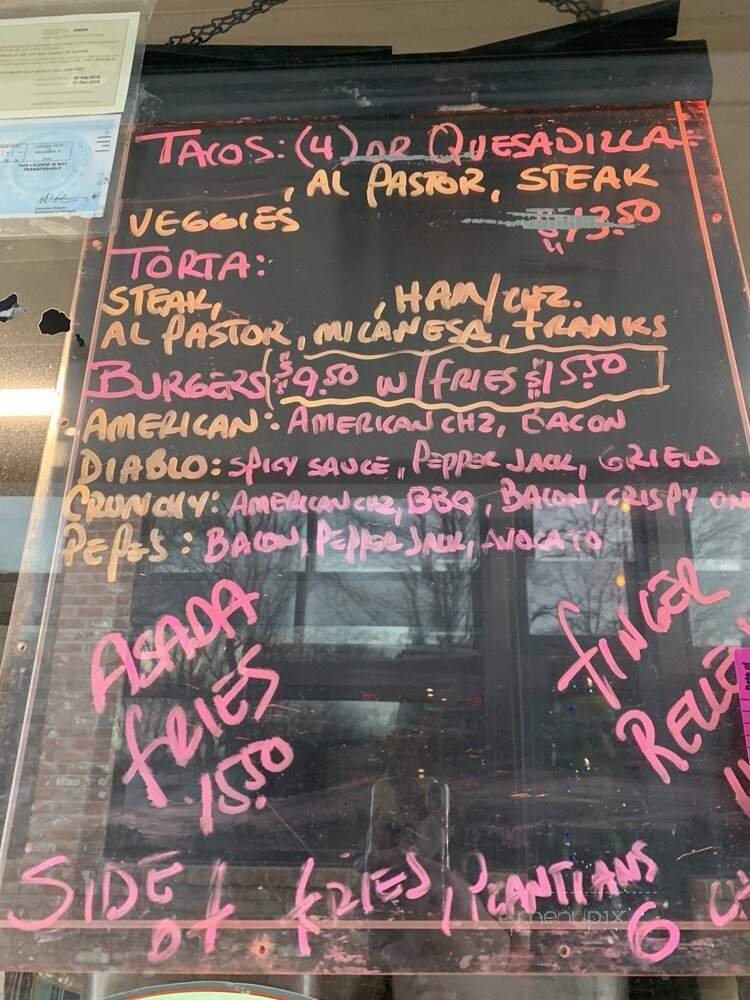 THIS LICENSE IS NOT
TRANSFERABLE
TACOS: (4) OR QUESADILLA
, AL PASTOR, STEAK
VEGGIES $13.50
TORTA:
STEAK, , HAM/CHZ.
AL PASTOR, MILANESA, FRANKS
BURGERS $9.50 W/FRIES $15.50
AMERICAN: AMERICAN CHZ, BACON
DIABLO: SPICY SAUCE, PEPPER JACK, GRIELD
CRUNCHY: AMERICAN CHZ, BBQ, BACON, CRISPY ON
PEPES: BACON, PEPPER JACK, AVOCATO
ASADA
FRIES
15.50
FINGER
RELLE
SIDE OF FRIES, PLANTIANS
6
menupix